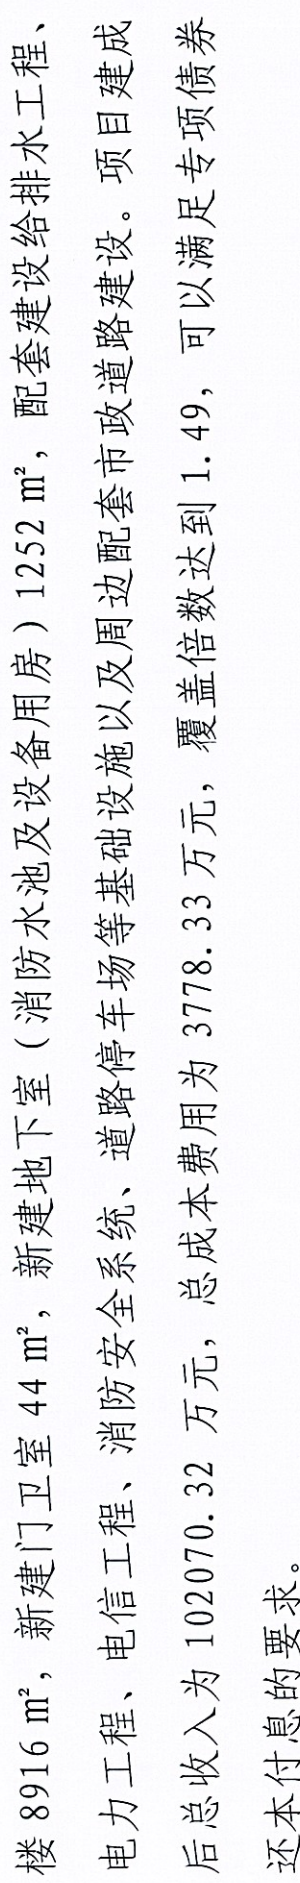 楼 8916 ㎡，新建门卫室 44 ㎡，新建地下室（消防水池及设备用房）1252 ㎡，配套建设给排水工程、
电力工程、电信工程、消防安全系统、道路停车场等基础设施以及周边配套市政道路建设。项目建成
后总收入为 102070.32 万元，总成本费用为 3778.33 万元，覆盖倍数达到 1.49，可以满足专项债券
还本付息的要求。